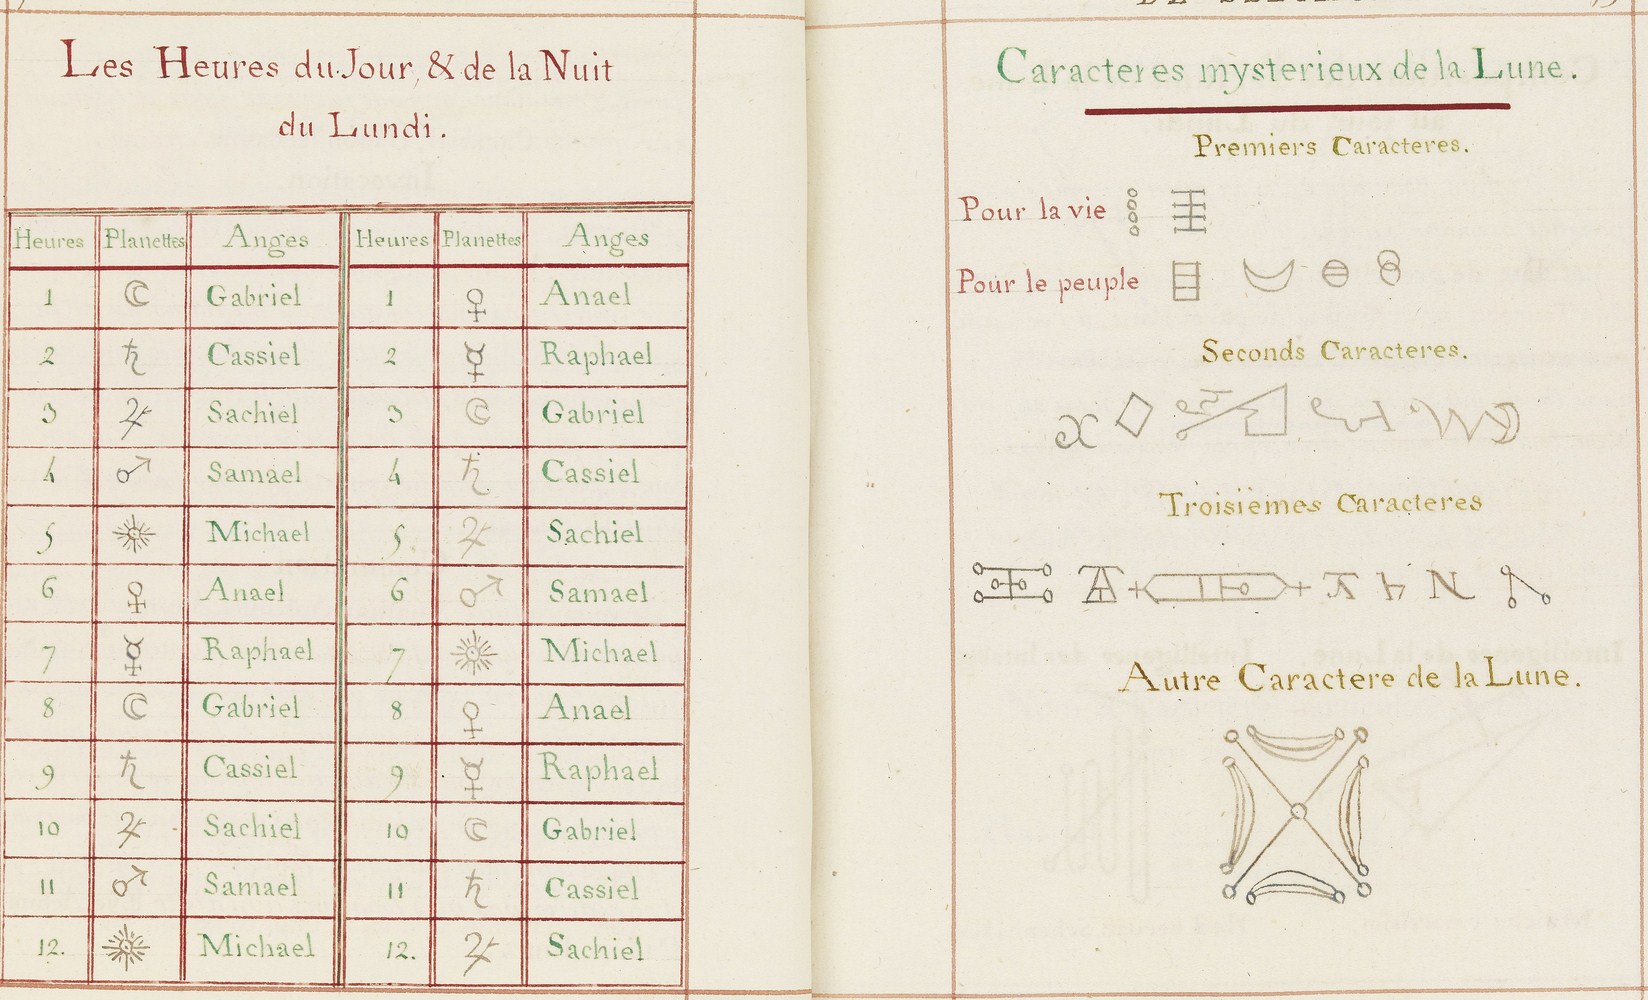 Les Heures du Jour, & de la Nuit
du Lundi.
Heures Planettes Anges Heures Planettes Anges
1 ☾ Gabriel 1 ♀ Anael
2 ♄ Cassiel 2 ☿ Raphael
3 ♃ Sachiel 3 ☾ Gabriel
4 ♂ Samael 4 ♄ Cassiel
5 ☉ Michael 5. ♃ Sachiel
6 ♀ Anael 6 ♂ Samael
7 ☿ Raphael 7 ☉ Michael
8 ☾ Gabriel 8 ♀ Anael
9 ♄ Cassiel 9 ☿ Raphael
10 ♃ Sachiel 10 ☾ Gabriel
11 ♂ Samael 11 ♄ Cassiel
12. ☉ Michael 12. ♃ Sachiel
Caracteres mysterieux de la Lune.
Premiers Caracteres.
Pour la vie
Pour le peuple
Seconds Caracteres.
Troisièmes Caracteres
Autre Caractere de la Lune.